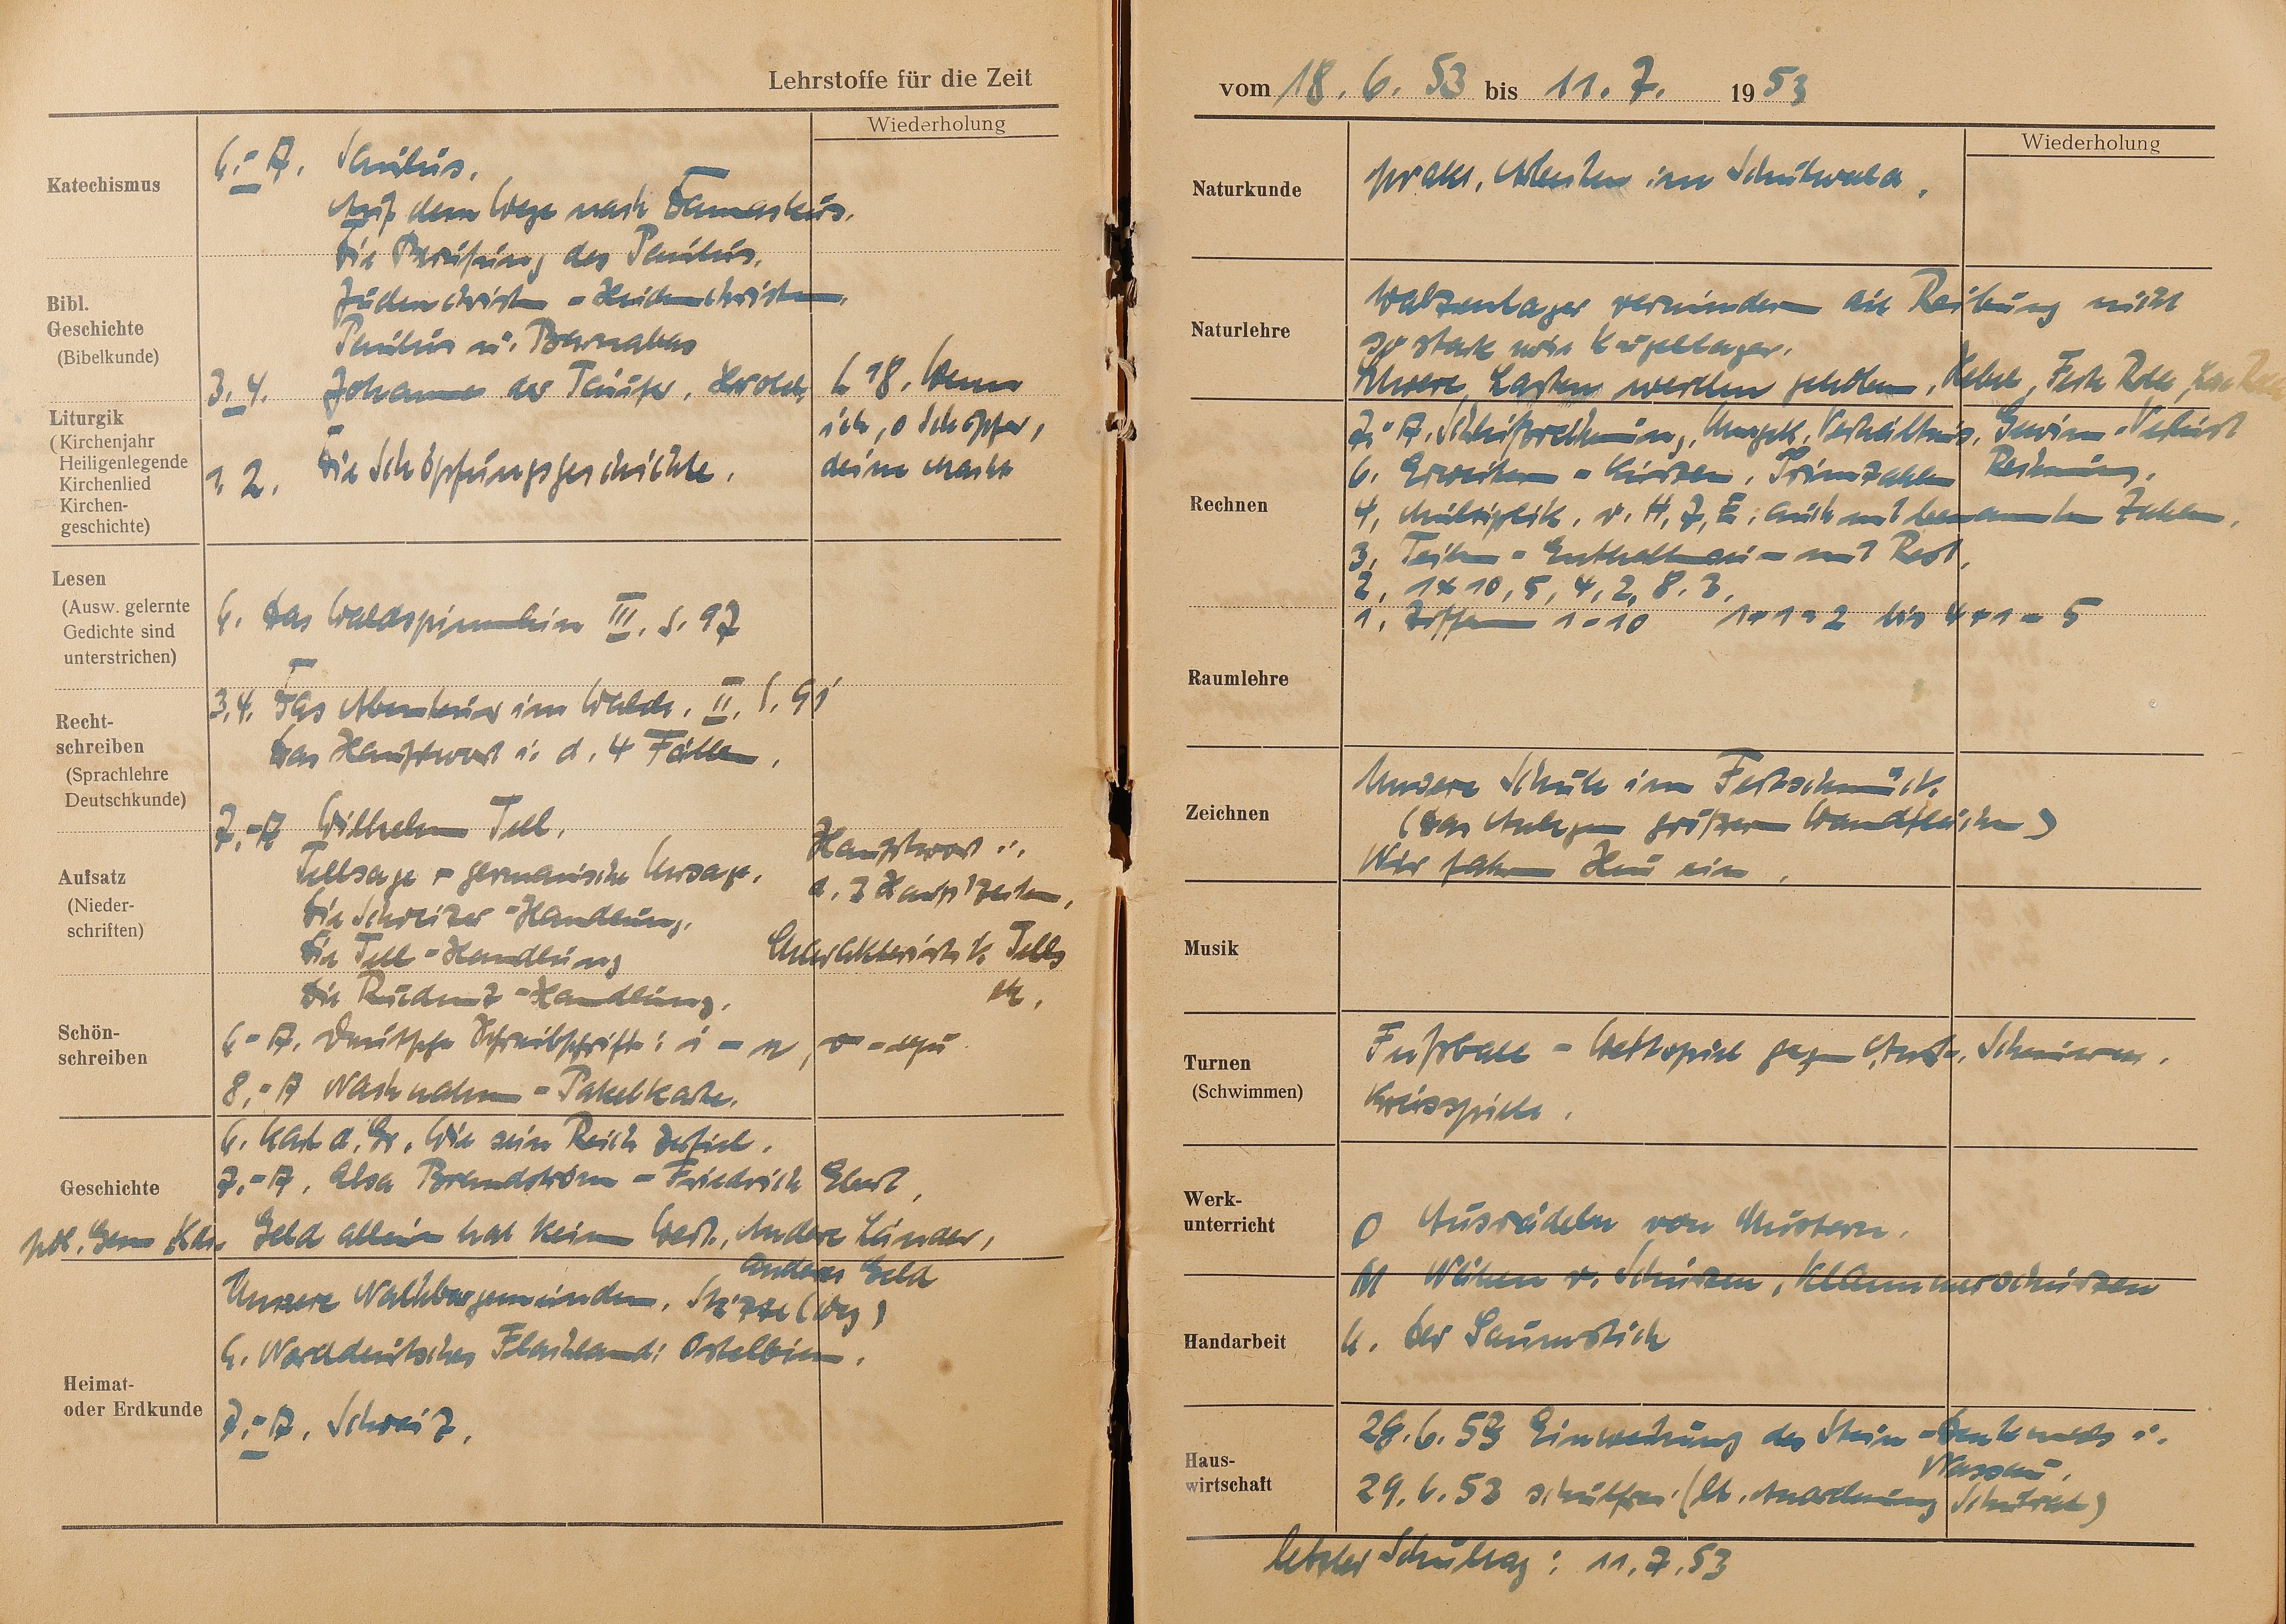 Lehrstoffe für die Zeit
Wiederholung
Katechismus
6.-A. Saulus.
Auf dem Wege nach Damaskus.
Die Berufung des Paulus.
Bibl.
Geschichte
(Bibelkunde)
Judenchristen - Heidenchristen.
Paulus u. Barnabas
3. 4. Johannes der Täufer. Herodes
L 18. Wenn
ich, o Schöpfer,
deine Macht
Liturgik
(Kirchenjahr
Heiligenlegende
Kirchenlied
Kirchen-
geschichte)
1. 2. Die Schöpfungsgeschichte.
Lesen
(Ausw. gelernte
Gedichte sind
unterstrichen)
6. Das Waldspinnlein III. S. 97
Recht-
schreiben
(Sprachlehre
Deutschkunde)
3.4. Das Abenteuer im Walde. II. S. 91
Das Hauptwort i. d. 4 Fällen.
7.-A Wilhelm Tell.
Tellsage - germanische Ursage.
Die Schweizer-Handlung.
Die Tell-Handlung
Die Rudenz-Handlung.
Hauptwort i.
d. 3 Hauptzeiten.
Charakteristik Tells
etc.
Aufsatz
(Nieder-
schriften)
Schön-
schreiben
6-A. Deutsche Schreibschrift: i - n,
8.-A Nachnahme - Paketkarte.
Geschichte
6. Karl d. Gr. Wie sein Reich zerfiel.
7.-A. Elsa Brandström - Friedrich Ebert.
pol. Gem Kde. Geld allein hat keinen Wert. Andere Länder,
anderes Geld
Heimat-
oder Erdkunde
Unsere Nachbargemeinden. Skizze (Weg)
6. Norddeutsches Flachland: Ostelbien.
7.-A. Schweiz.
vom 18. 6. 53 bis 11. 7. 1953
Wiederholung
Naturkunde
prakt. Arbeiten im Schulwald.
Naturlehre
Walzenlager vermindern die Reibung nicht
so stark wie Kugellager.
Schwere Lasten werden gehoben. Hebel, Feste Rolle, lose Rolle
Rechnen
7.-A. Schlußrechnung, Umgek. Verhältnis, Gewinn-Verlust
6. Erweitern - Kürzen. Primzahlen Rechnung.
4. Multiplik. v. H, Z, E. auch mit benannten Zahlen.
3. Teilen - Enthaltensein - mit Rest.
2. 1x10, 5, 4, 2, 8. 3.
1. Ziffern 1-10 1+1=2 bis 4+1=5
Raumlehre
Zeichnen
Unsere Schule im Festschmuck.
(Das Anlegen größerer Wandflächen)
Wir fahren Heu ein.
Musik
Turnen
(Schwimmen)
Fußball - Wettspiel gegen
Kreisspiele.
Werk-
unterricht
O Ausrädeln von Mustern.
M Nähen v. Schürzen, Klammerschürzen
Handarbeit
U. Der Saumstich
Haus-
wirtschaft
28.6.53 Einweihung des Stein-Denkmals i.
Nassau.
29.6.53 schulfrei (lt. Anordnung Schulrat)
letzter Schultag: 11.7.53